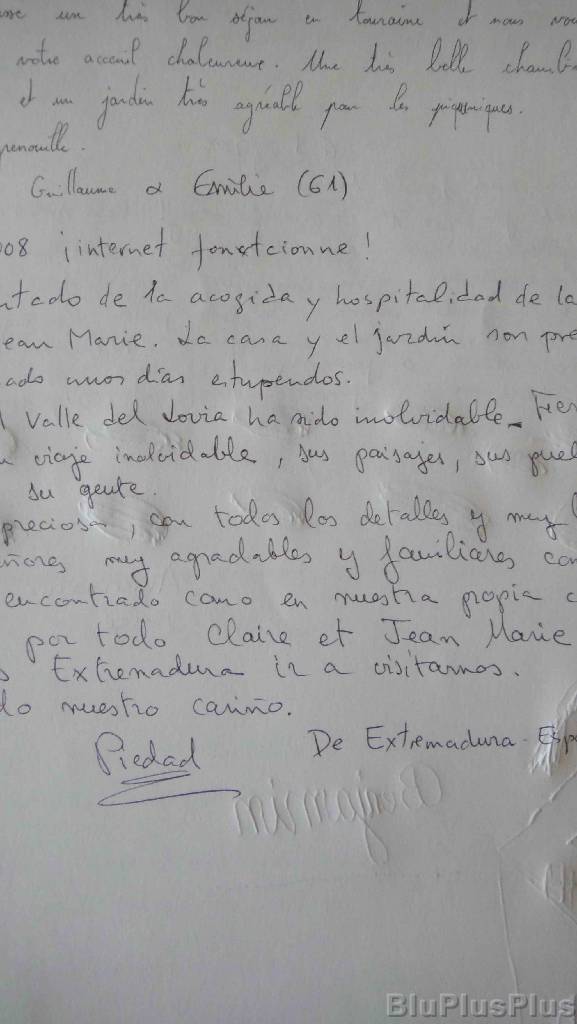 un très bon séjour en touraine et nous
votre accueil chaleureux. Une très belle
et un jardin très agréable pour les piqueniques.
Guillaume & Emilie (61)
008 ¡internet fonctcionne!
ntado de la acogida y hospitalidad de la
ean Marie. La casa y el jardín son pre
ado unos días estupendos.
l Valle del Lovia ha sido inolvidable.
viaje inolvidable, sus paisajes, sus puel
su gente.
preciosa, con todos los detalles y muy
eñores muy agradables y familiares con
encontrado como en nuestra propia c
por todo Claire et Jean Marie
s Extremadura ir a visitarnos.
do nuestro cariño.
Piedad
De Extremadura - Espa
Benjamin
BluPlusPlus